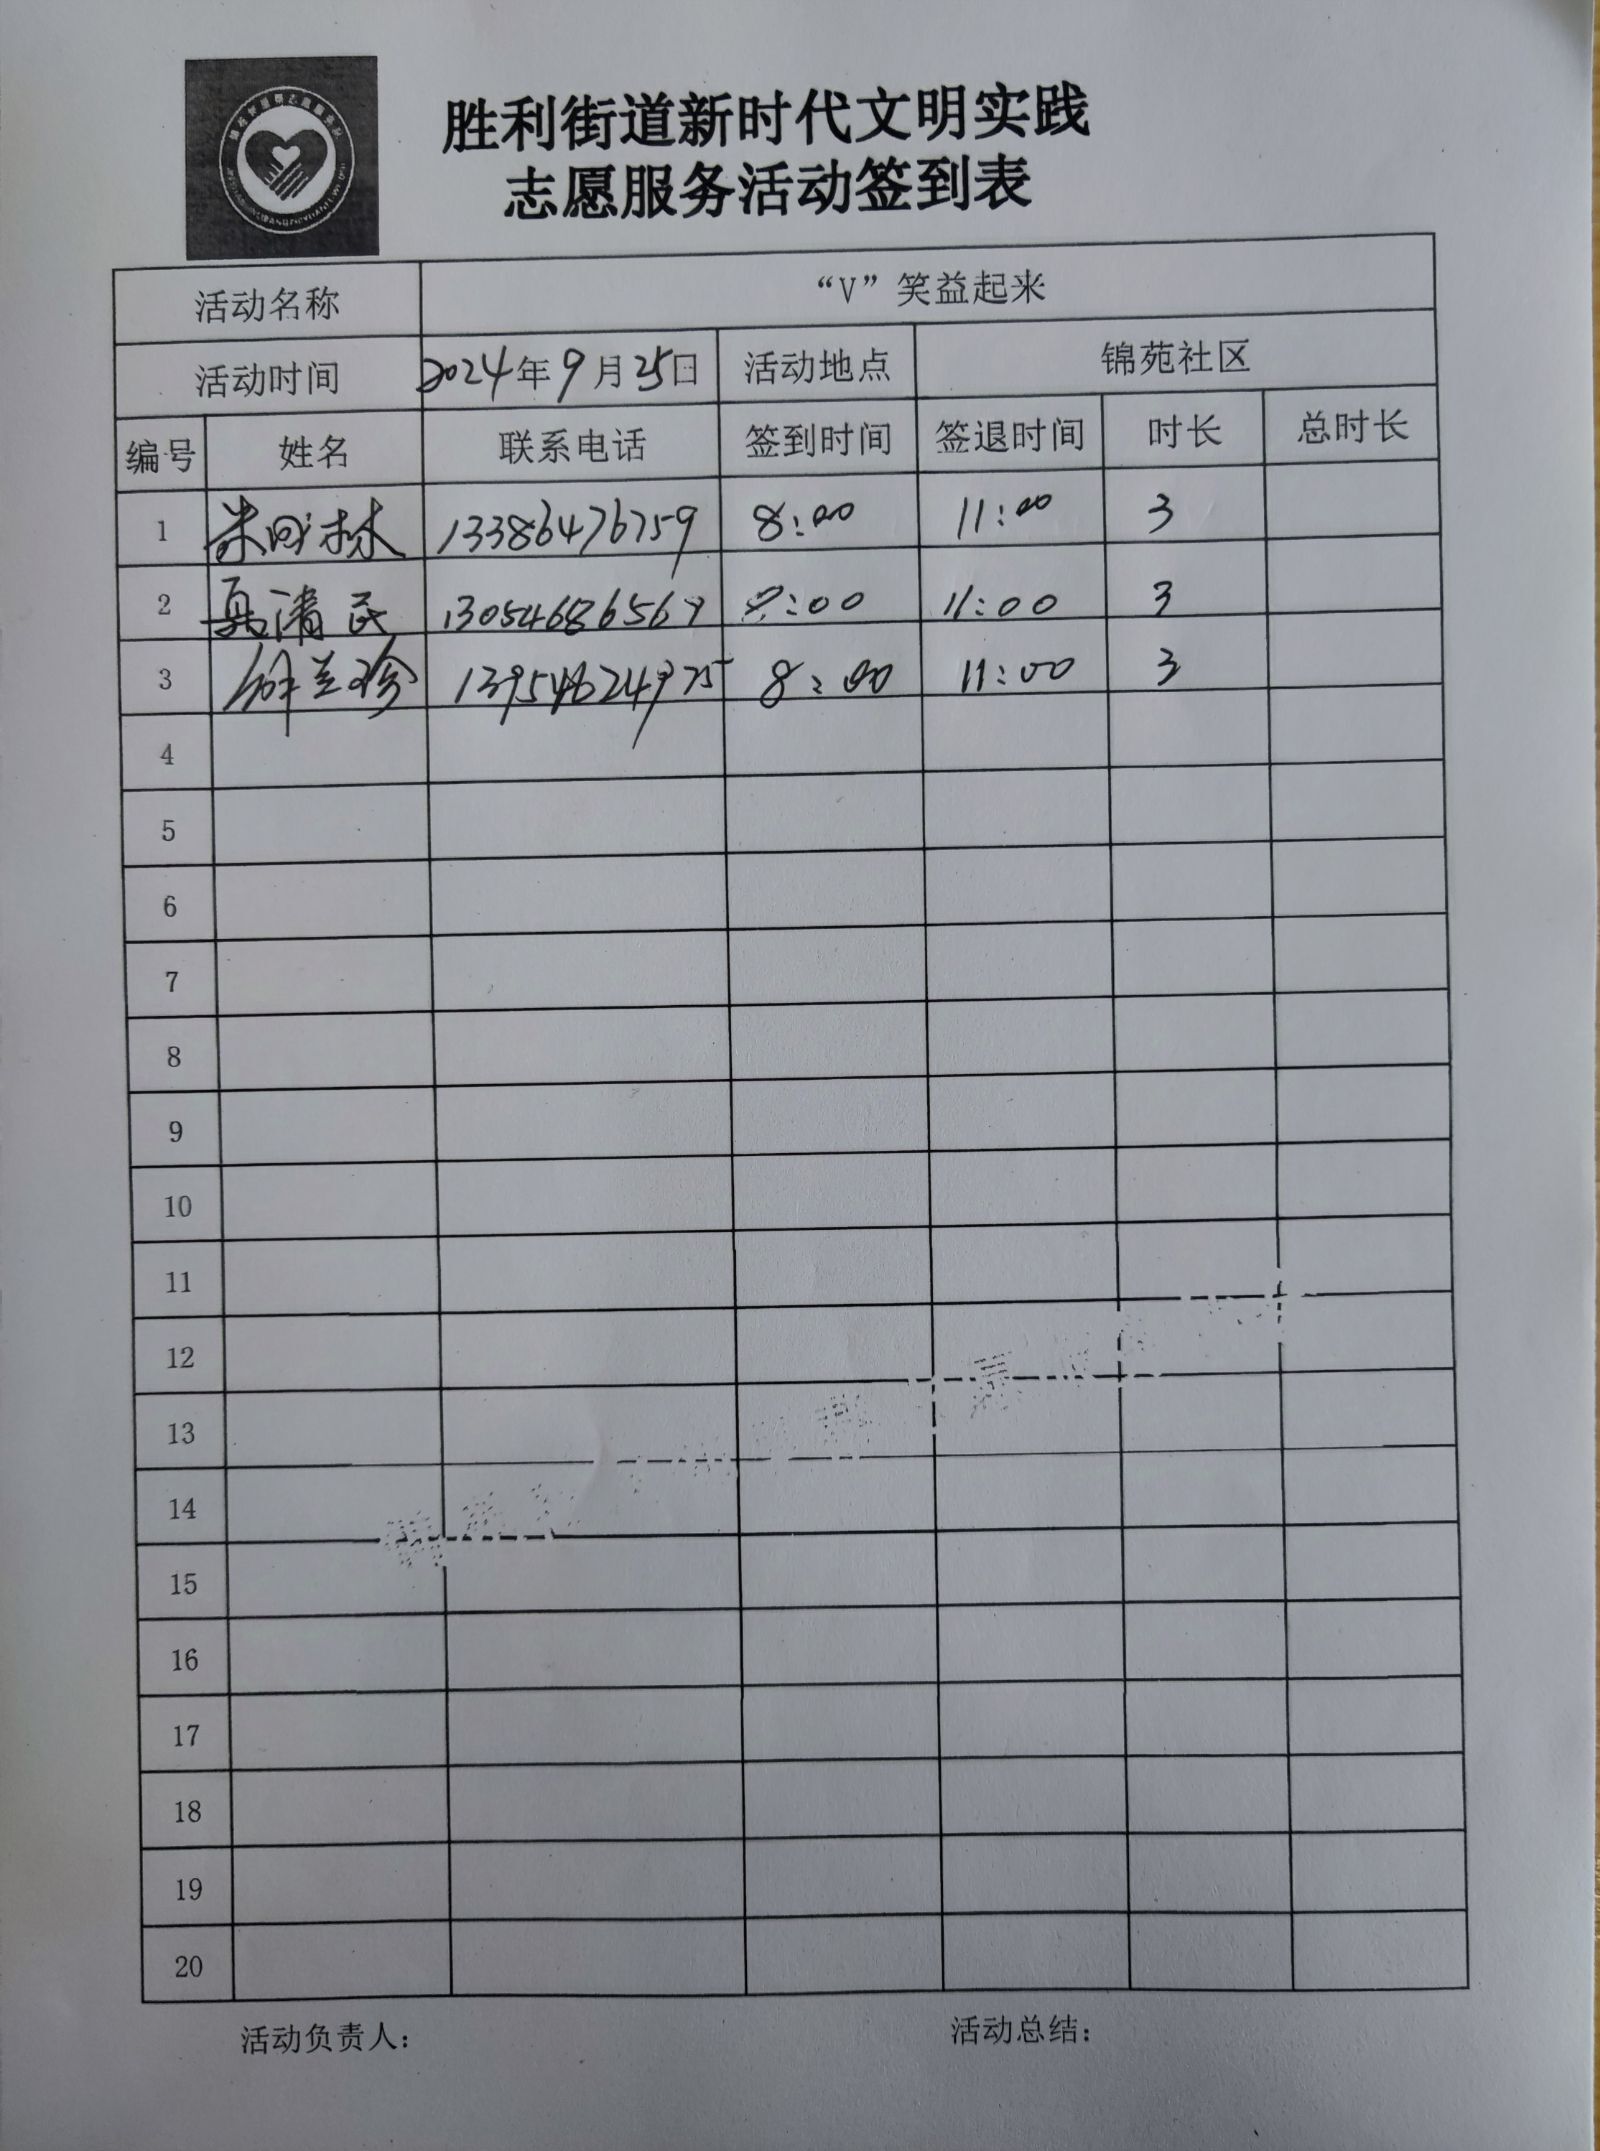 胜利街道新时代文明实践
志愿服务活动签到表
活动名称 “V”笑益起来
活动时间 2024年9月25日 活动地点 锦苑社区
编号 姓名 联系电话 签到时间 签退时间 时长 总时长
1 13386476759 8:00 11:00 3
2 清民 8:00 11:00 3
3 兰珍 13954624975 8:00 11:00 3
4
5
6
7
8
9
10
11
12
13
14
15
16
17
18
19
20
活动负责人： 活动总结：